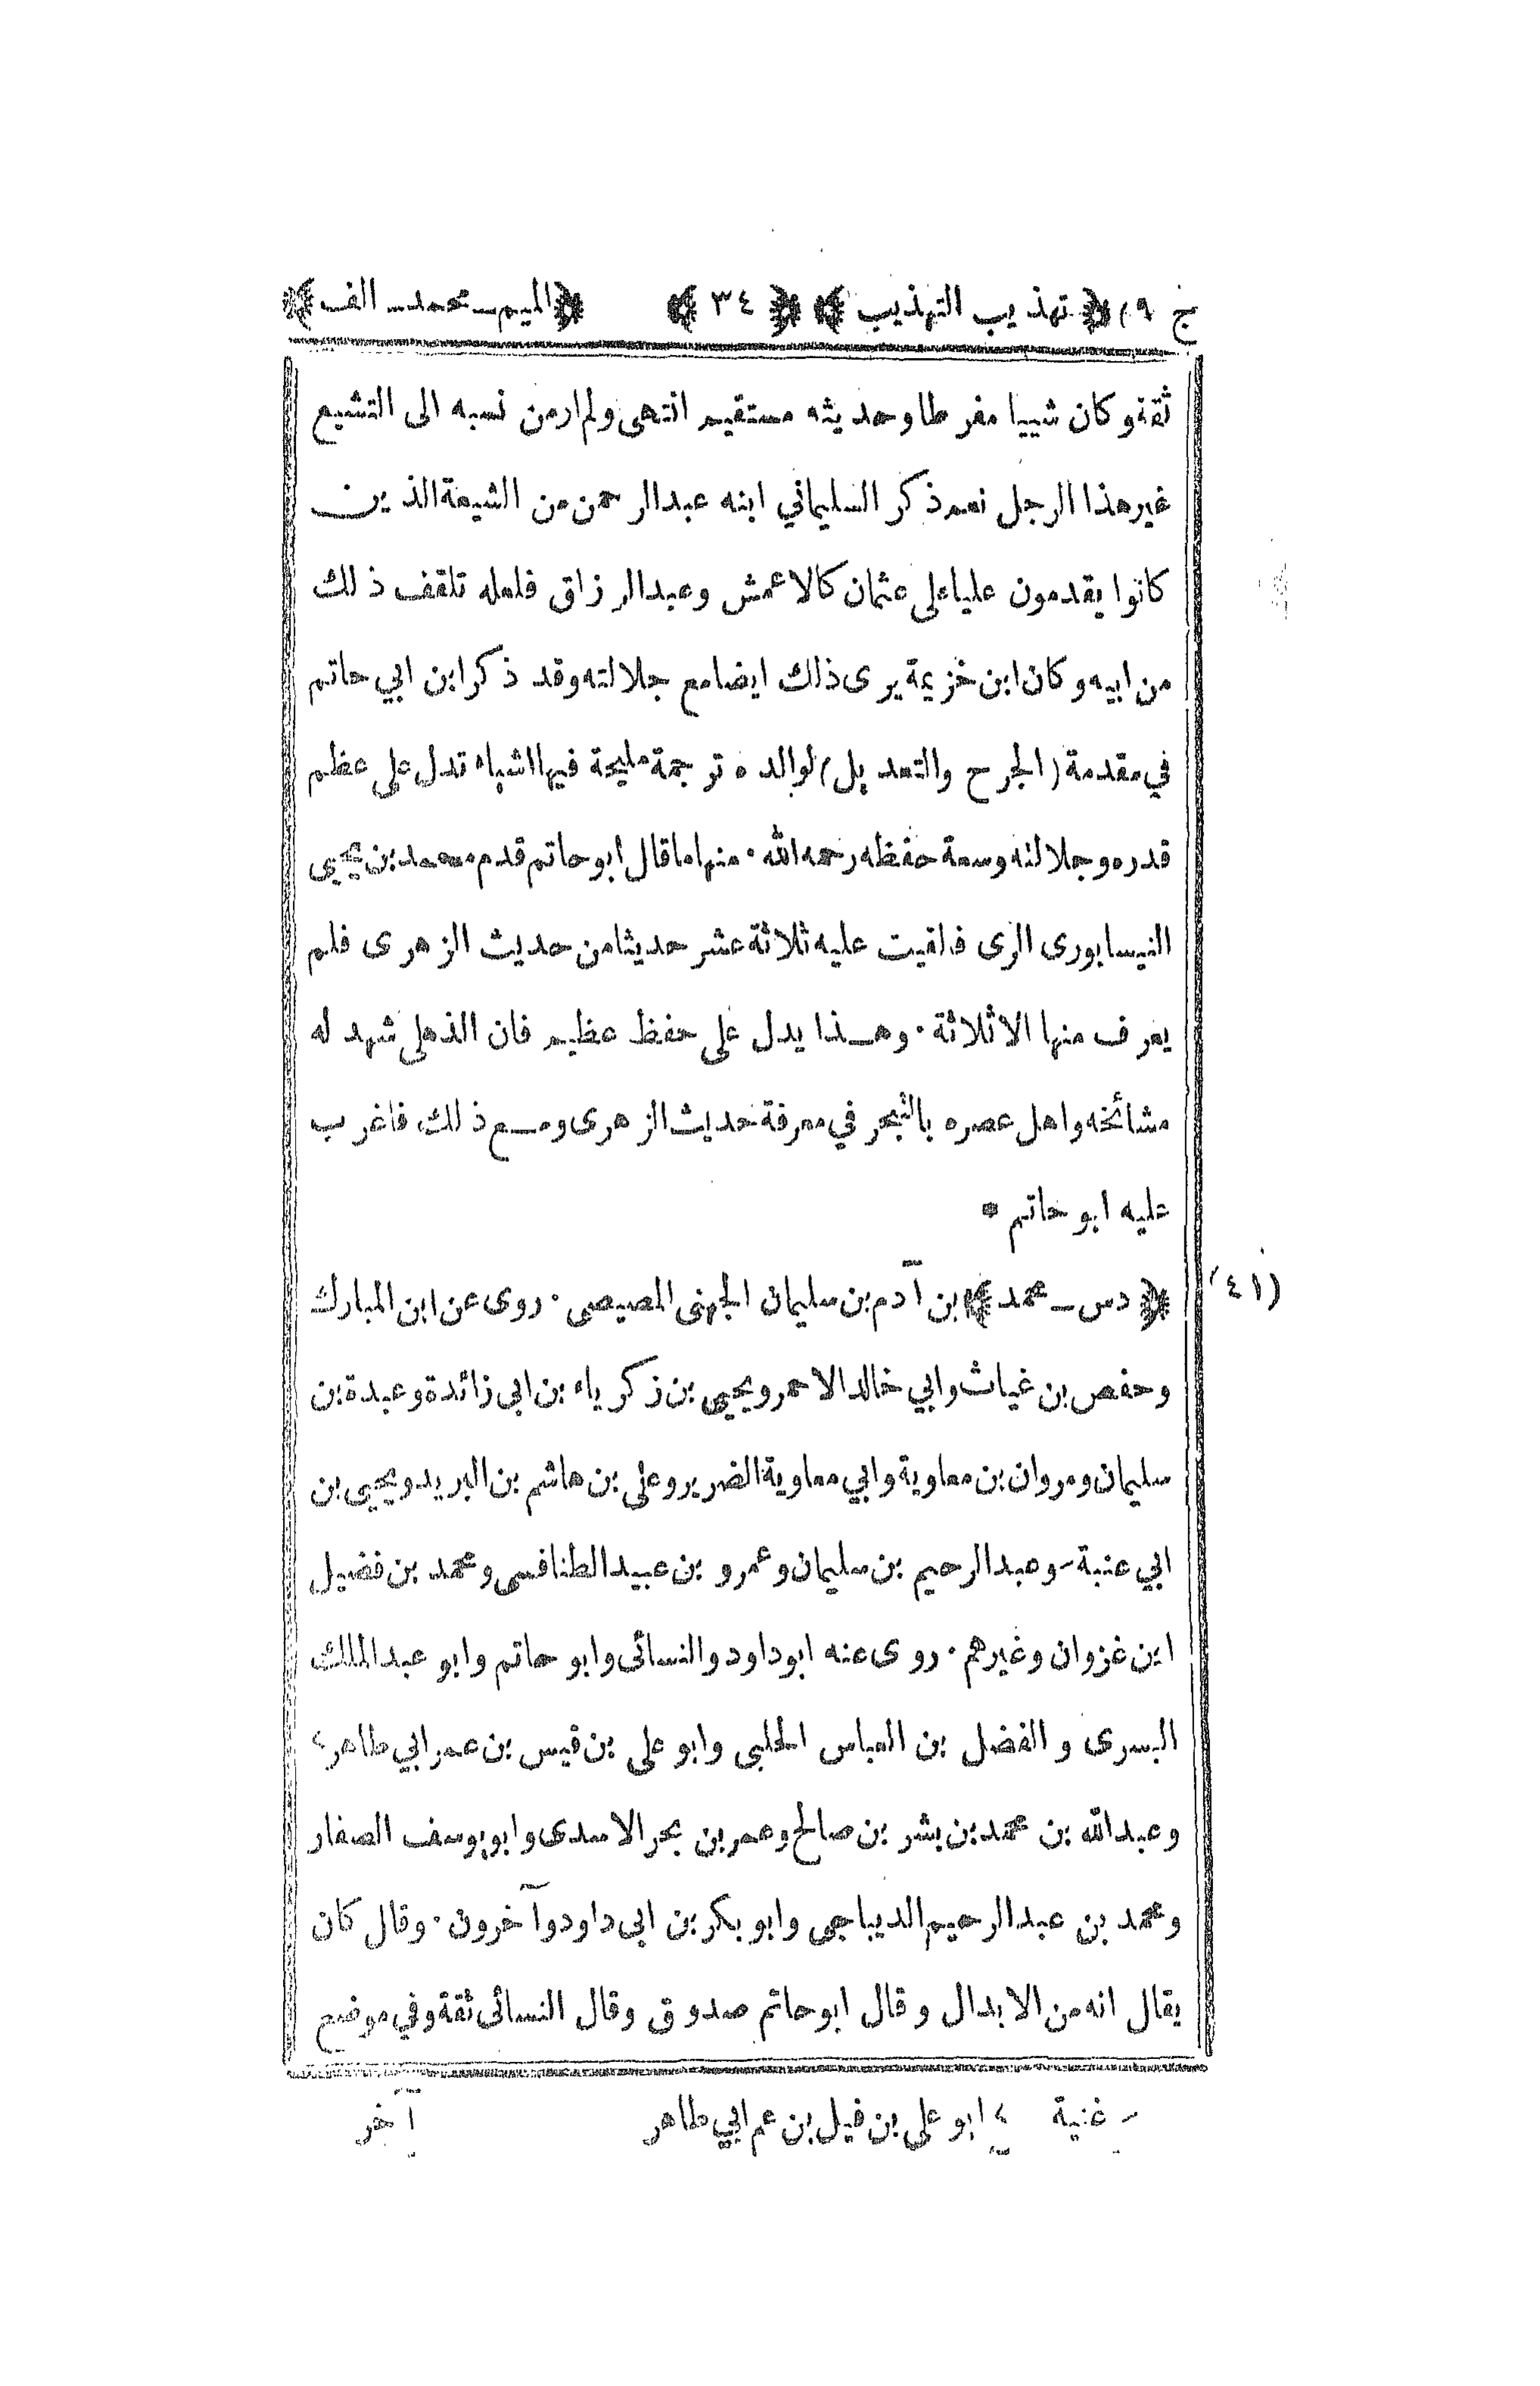 ج ٩) ﴿ تهذيب التهذيب ﴾ ﴿ ٣٤ ﴾ ﴿ الميم ـ محمد ـ الف ﴾
ثقة وكان شييا مفرطا وحديثه مستقيم انتهى ولم ار من نسبه الى التشيع
غير هذا الرجل نعم ذكر السليماني ابنه عبد الرحمن من الشيعة الذين
كانوا يقدمون عليا على عثمان كالاعمش وعبد الرزاق فلعله تلقف ذلك
من ابيه وكان ابن خزيمة يرى ذلك ايضا مع جلالته وقد ذكر ابن ابي حاتم
في مقدمة (الجرح والتعديل) لوالده ترجمة مليحة فيها اشياء تدل على عظم
قدره وجلالته وسعة حفظه رحمه الله٠ منها ما قال ابو حاتم قدم محمد بن يحيى
النيسابورى الرى فالقيت عليه ثلاثة عشر حديثا من حديث الزهرى فلم
يعرف منها الا ثلاثة٠ وهذا يدل على حفظ عظيم فان الذهلى شهد له
مشائخه واهل عصره بالتبحر في معرفة حديث الزهرى ومع ذلك فاغرب
عليه ابو حاتم *
(٤١) ﴿ دس ـ محمد ﴾ بن آدم بن سليمان الجهنى المصيصى٠ روى عن ابن المبارك
وحفص بن غياث وابي خالد الاحمر ويحيى بن زكرياء بن ابى زائدة وعبدة بن
سليمان ومروان بن معاوية وابي معاوية الضرير وعلى بن هاشم بن البريد ويحيى بن
ابي عنبة ـ وعبد الرحيم بن سليمان وعمرو بن عبيد الطنافسى ومحمد بن فضيل
ابن غزوان وغيرهم٠ روى عنه ابوداود والنسائى وابو حاتم وابو عبد الملك
البسرى و الفضل بن العباس الحلبى وابو على بن قيس بن عمر ابي طاهر ٤
وعبد الله بن محمد بن بشر بن صالح وعمر بن بحر الاسدى وابو يوسف الصفار
ومحمد بن عبد الرحيم الديباجى وابو بكر بن ابى داود وآخرون٠ وقال كان
يقال انه من الابدال وقال ابو حاتم صدوق وقال النسائى ثقة وفي موضع
ـ غنية ٤ ابو على بن فيل بن عم ابي طاهر
آخر